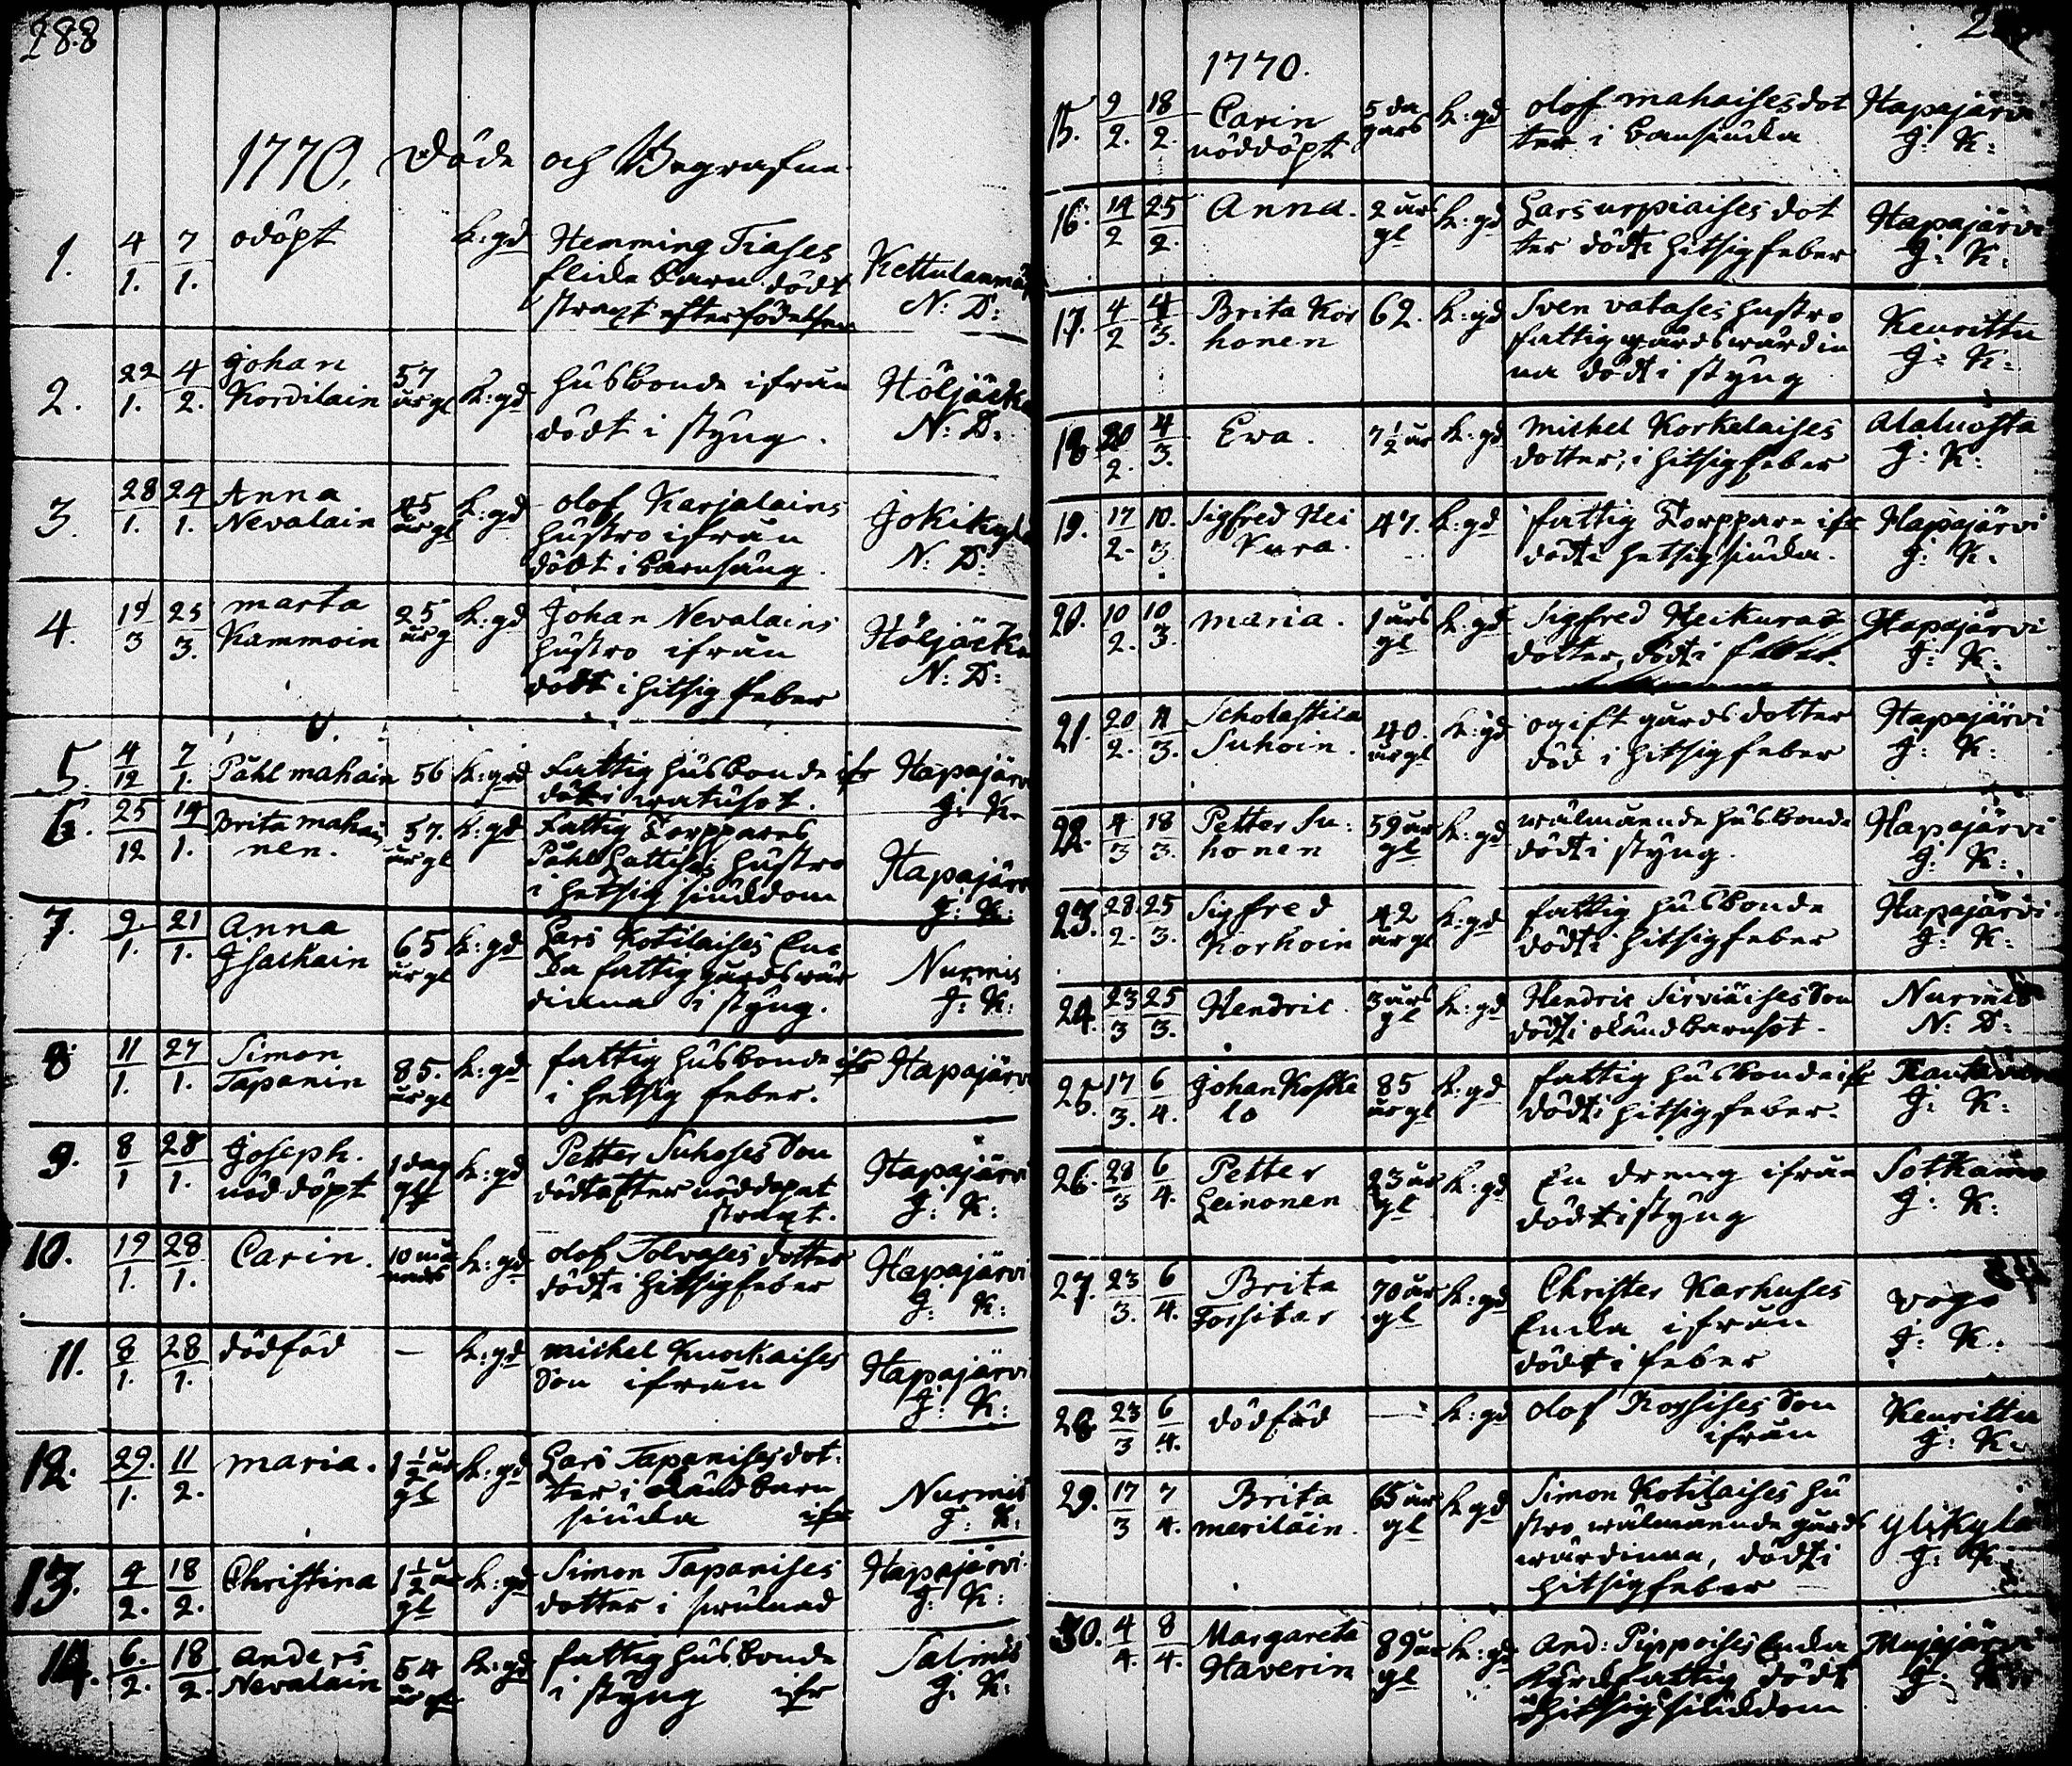 288
1770. Döde och Begrafne
1. 4/1. 7/1. odöpt k:gd Hemming Tiases
flicke barn dödt
straxt efter födelsen
N: D:
2. 22/1. 4/2. Johan
Kordilain 57
år gl k:gd husbonde ifrån
dödt i styng.
Höljäckä
N: D:
3. 28/1. 24/1. Anna
Nevalain 45
år gl k:gd olof Karjalains
hustro ifrån
dödt i barnsäng.
Jokikylä
N: D:
4. 19/3 25/3. marta
Kammoin 25
år g k:gd Johan Nevalains
hustro ifrån
dödt i hitsig feber
Höljäckä
N: D:
5. 4/12 7/1. Påhl mahain 56 k:grd Fattig husbonde ifr
dödt i watusot.
Hapajärvi
J: K.
6. 25/12 14/1. Brita mahai
nen. 57.
år gl k:gd Fattig Torppares
Påhl hustro
i hetsig siuckdom
Hapajärvi
J: K:
7. 9/1. 21/1. Anna
Jsachain 65
år gl k:gd Lars Kotilaises Enc
ka fattig gårdswär
dinna i styng.
Nurmis
J: K:
8 11/1. 27/1. Simon
Tapanin 85.
år gl k:gd fattig husbonde ifr
i hetsig feber.
Hapajärvi
9. 8/1 28/1. Joseph.
nöddöpt 1 dag
gl k:gd Petter Suhoses Son
dödt after nöddopet
straxt.
Hapajärvi
J: K:
10. 19/1. 28/1. Carin. 10 må
nads k:gd olof Tolvases dotter
dödt i hitsig feber
Hapajärvi
J: K:
11. 8/1. 28/1. dödföd – k:gd michel Kuockaises
Son ifrån
Hapajärvi
J: K:
12. 29./1. 11/2. maria. 1 1/2 år
gl k:gd Lars Tapanises dot
ter i barn
siucka ifr
Nurmis
J: K:
13. 4/2. 18/2. Christina 1 1/2 år
gl k:gd Simon Tapanises
dotter i swulnad
Hapajärvi
J: K:
14. 6./2. 18/2. Anders
Nevalain 54
år gl k:gd fattig husbonde
i styng ifr
Salmis
J. K:
1770.
15. 9/2. 18/2. Carin
nöddöpt 5 da
gars k:gd olof mahaises dot
ter i
Hapajärvi
J: K:
16. 14/2 25/2. Anna. 2 års
gl k:gd Lars urpiaises dot
ter dödt i hitsig feber
Hapajärvi
J: K:
17. 4/2 4/3. Brita Kor
honen 62. k:gd Sven vatases hustro
fattig gårdswärdin
na dödt i styng
J: K:
18 20/2. 4/3. Ewa. 7 1/2 år k:gd michel Korkalaises
dotter, i hitsig feber
Alaluosta
J: K:
19. 17/2. 10./3 Sigfred Hei
kura. 47. k:gd fattig Torppare ifr
dödt i hetsig siucka.
Hapajärvi
J: K.
20. 10/2. 10/3. maria. 1 års
gl k:gd Sigfred Heikuras
dotter, dödt i feber.
Hapajärvi
J: K:
21. 20/2. 11/3. Scholastica
Suhoin. 40.
år gl k:gd ogift gårdsdotter
död i hitsig feber
Hapajärvi
J: K:
22. 4/3 18/3. Petter Su:
honen 59 år
gl k:gd wälmående husbonde
dödt i styng.
Hapajärvi
J: K:
23. 28./2. 25/3. Sigfred
Korhoin 42
år gl k:gd fattig husbonde
dödt i hitsig feber
Hapajärvi
J: K:
24. 23/3 25/3. Hendric 3 års
gl k:gd Hendric Sirviäises Son
dödt i
Nurmis
N: D:
25. 17/3. 6/4. Johan Koska
lo 85
år gl k:gd fattig husbonde ifr
dödt i hitsig feber.
J: K:
26. 28/3 6/4. Petter
Leinonen 23 år
gl k:gd En dreng ifrån
dödt i styng
Sotkamo
J: K:
27. 23/3. 6/4. Brita
Torsitar 70 år
gl k:gd Christer Karhuses
Encka ifrån
dödt i feber
J: K:
28 23/3 6/4. dödföd — k:gd olof Son
ifrån
J: K:
29. 17/3 7/4. Brita
meriläin. 65 år
gl k:gd Simon Kotilaises hu
stro, wälmående gårds
wärdinna, dödt i
hitsig feber
Ylikylä
J: K:
30. 4/4. 8/4. Margareta
Haverin 89 år
gl k:gd And: Pippoises Encka
fattig dödt
i hitsig siuckdom
Mujejärvi
J: K: